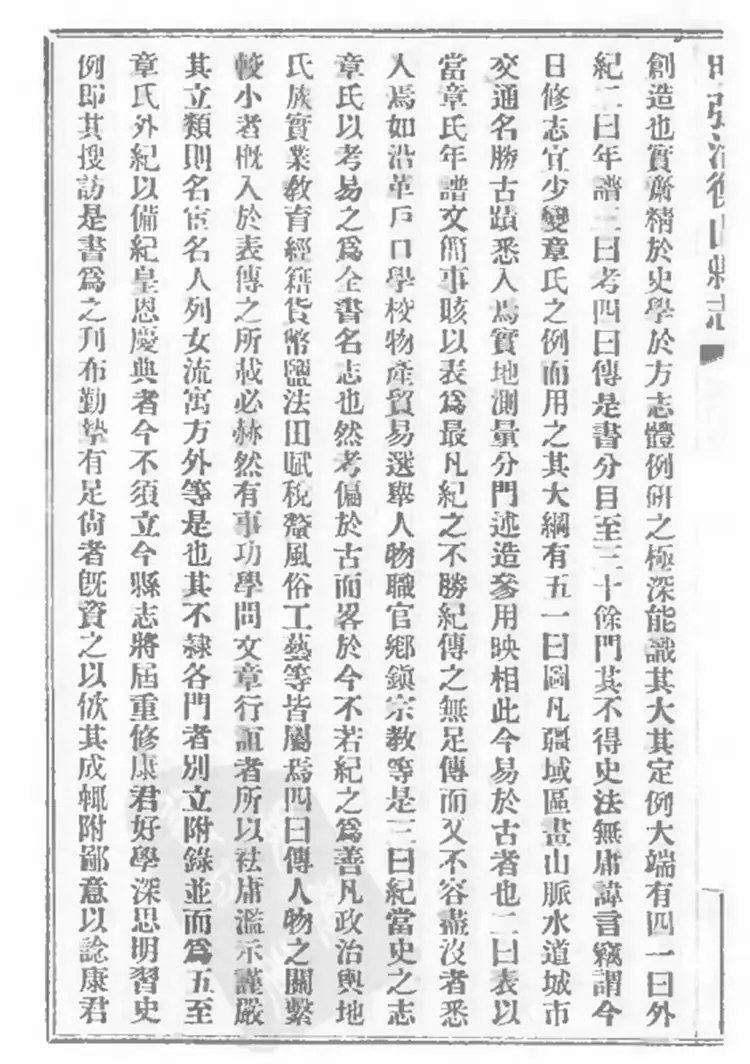 創造也實齋精於史學於方志體例研之極深能識其大其定例大端有四一曰外
紀二曰年譜三曰考四曰傳是書分目至三十餘門其不得史法無庸諱言竊謂今
日修志宜少變章氏之例而用之其大綱有五一曰圖凡疆域區畫山脈水道城市
交通名勝古蹟悉入焉實地測量分門述造參用映相此今易於古者也二曰表以
當章氏年譜文簡事賅以表為最凡紀之不勝紀傳之無足傳而又不容盡沒者悉
入焉如沿革戶口學校物產貿易選舉人物職官鄉鎮宗教等是三曰紀當史之志
章氏以考易之為全書名志也然考偏於古而畧於今不若紀之為善凡政治輿地
氏族實業教育經籍貨幣鹽法田賦稅釐風俗工藝等皆屬焉四曰傳人物之關繫
較小者概入於表傳之所載必赫然有事功學問文章行誼者所以祛庸濫示謹嚴
其立類則名宦名人列女流寓方外等是也其不隸各門者別立附錄並而為五至
章氏外紀以備紀皇恩慶典者今不須立今縣志將屆重修康君好學深思明習史
例即其搜訪是書為之刋布勤摯有足尙者旣資之以佽其成輒附鄙意以諗康君